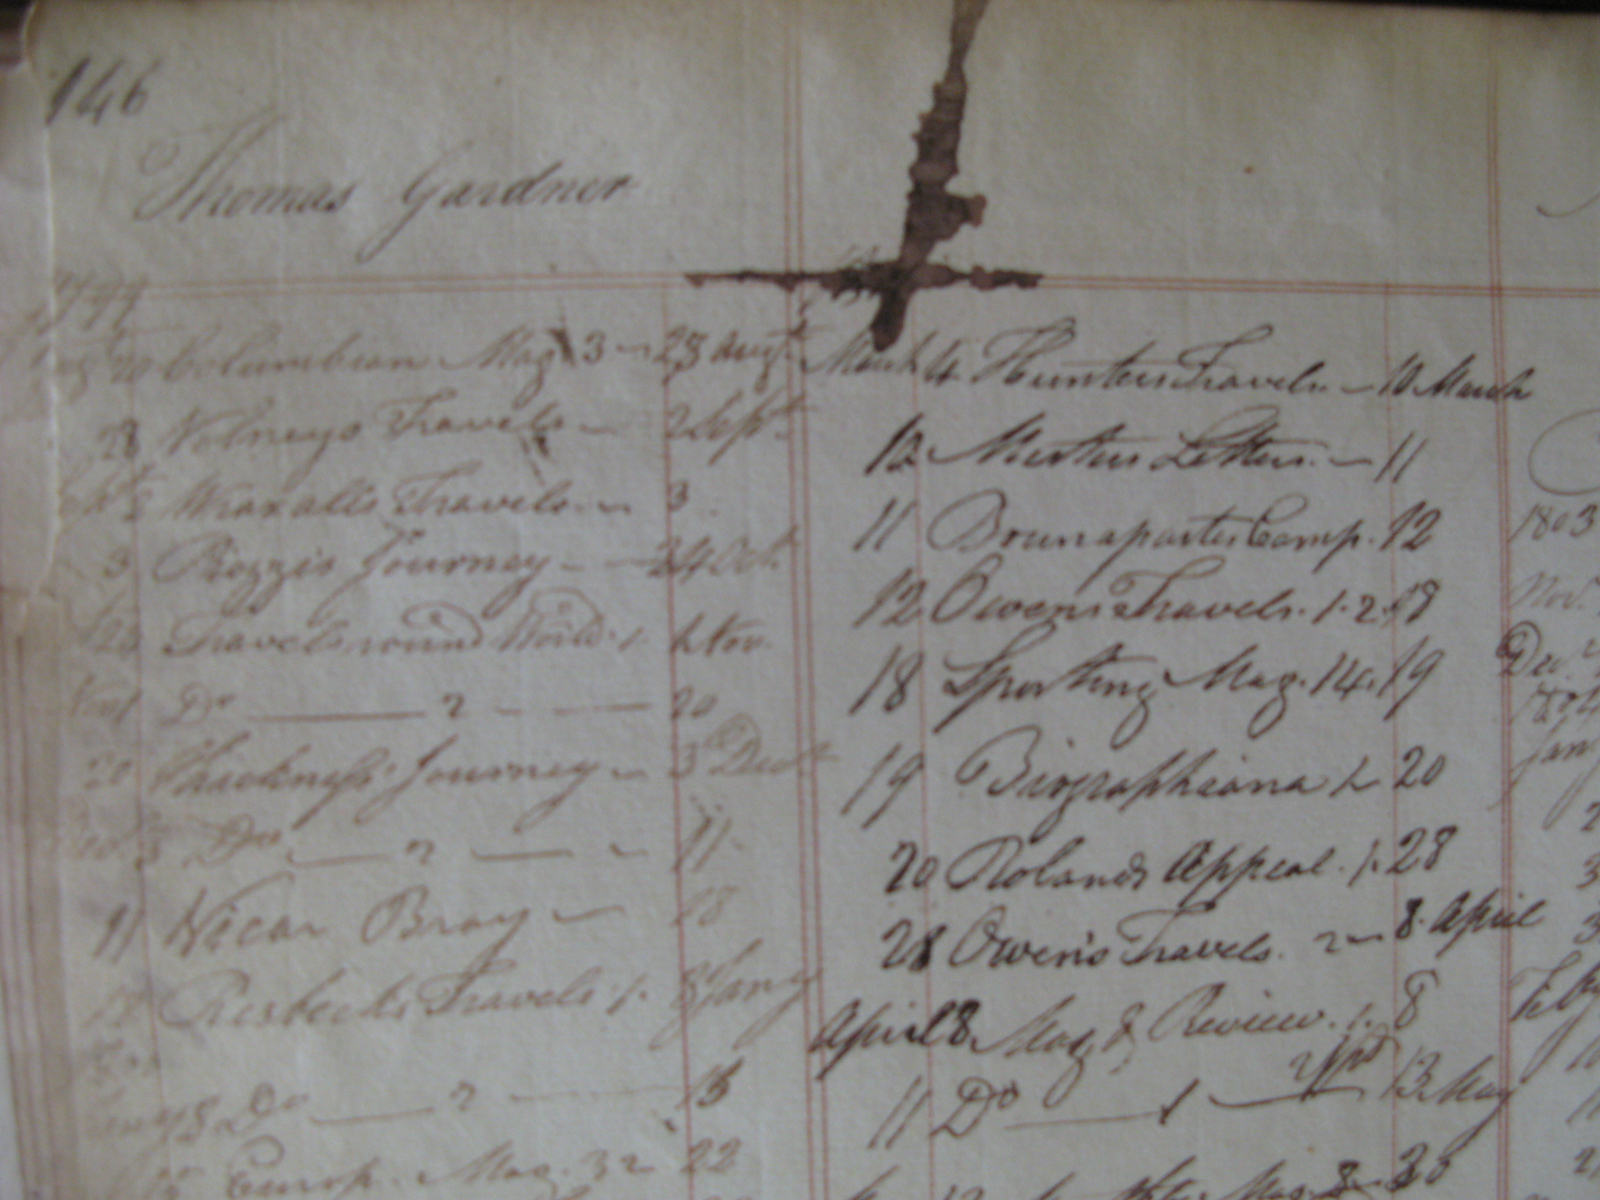 146
Thomas Gardner
1799
Augt 20 Columbian Mag. 3 - 28 Augt
28 Volneys Travels - 2 Sept
Sept 2 Wraxalls Travels - 3
3 Piozzis Journey - 24 Oct
24 Travels round World. 1. 1 Nov.
Nov 1 Do 2 20
20 Thicknesse Journey - 3 Dect
Dec. 3 Do 2 11
11 Vicar Bray - 18
18 Riesbecks Travels. 1. 8 Jany
Jany 8 Do 2 15
15 Europ. Mag. 32 22
March 4 Hunters Travels - 10 March
10 Letters - 11
11 Buonapartes Camp. 12
12 Owens Travels. 1. 2. 18
18 Sporting Mag. 14. 19
19 Biographiana 1 20
20 Rolands Appeal. 1. 28
28 Owens Travels. 2 - 8 April
April 8 Mag & Review. 1. 8
11 Do 1 13 May
Mag. 3 - 20
1803
Nov.
Dec.
1804
Jany
Feby